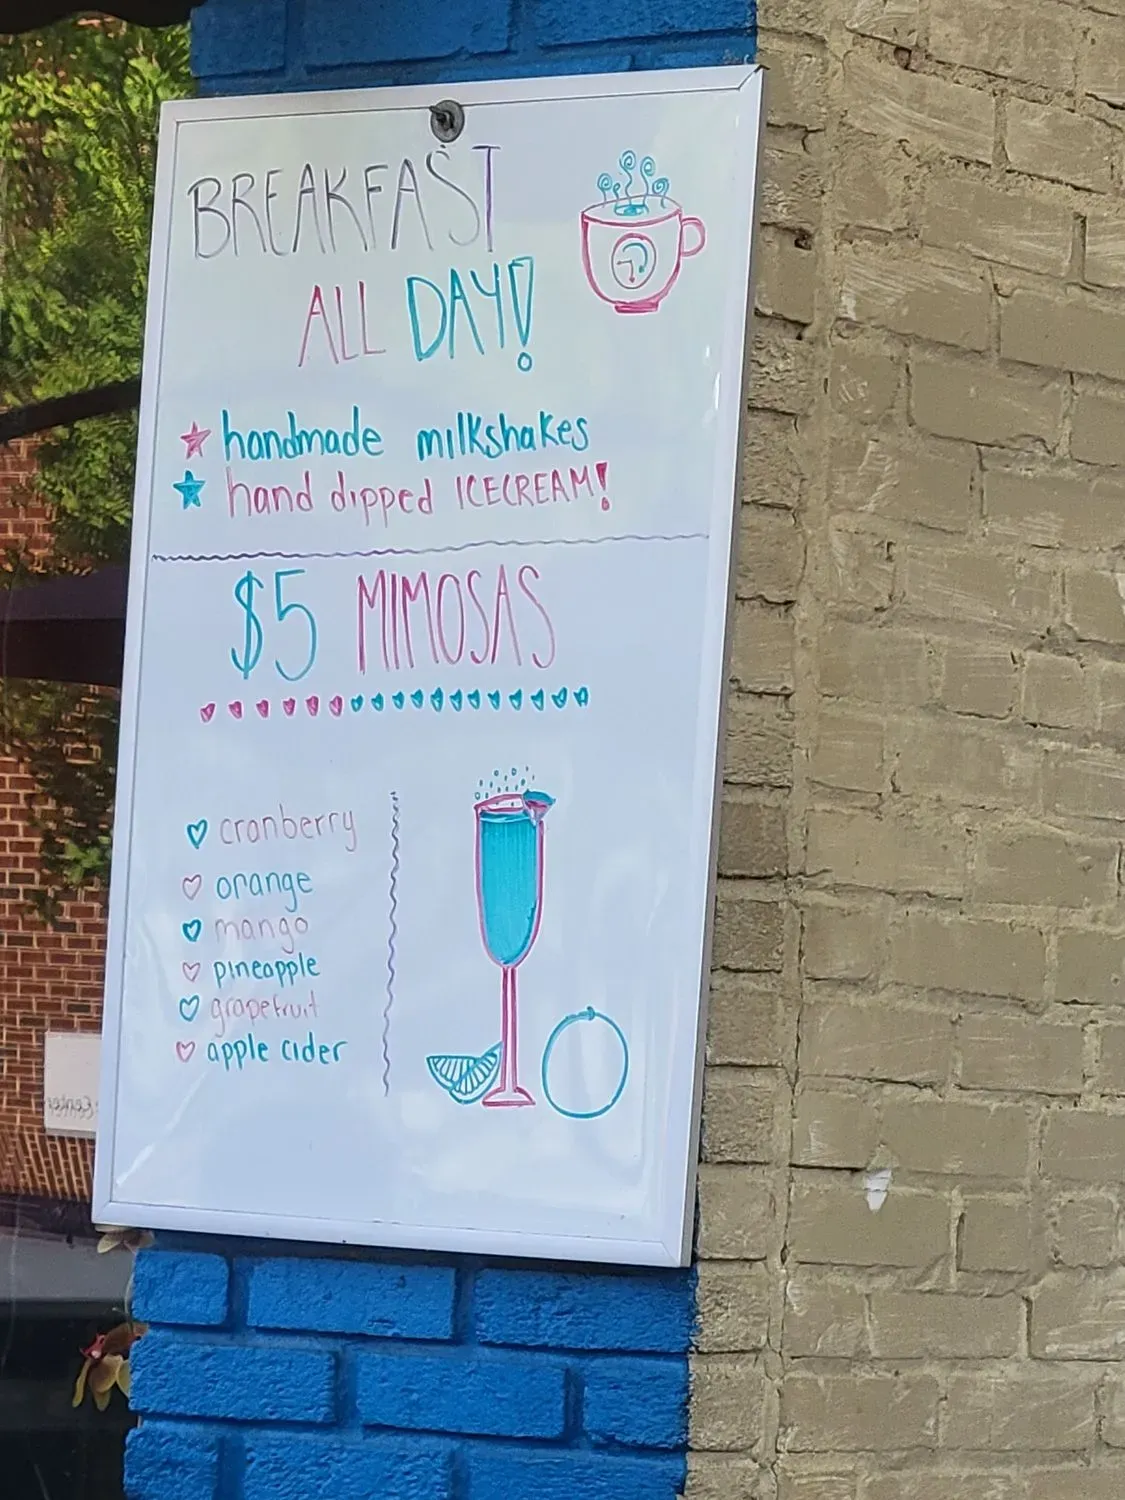 BREAKFAST
ALL DAY!
handmade milkshakes
hand dipped ICECREAM!
$5 MIMOSAS
cranberry
orange
mango
pineapple
grapefruit
apple cider